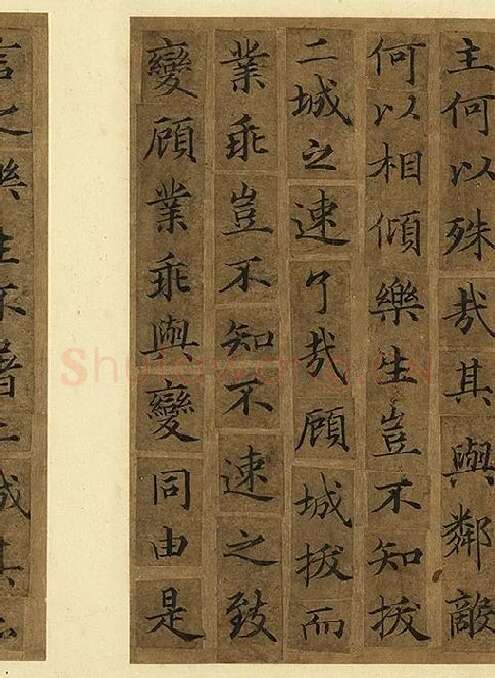 主何以殊哉其與鄰敵
何以相傾樂生豈不知拔
二城之速了哉顧城拔而
業乖豈不知不速之致
變顧業乖與變同由是
言之樂生不屠二城其亦